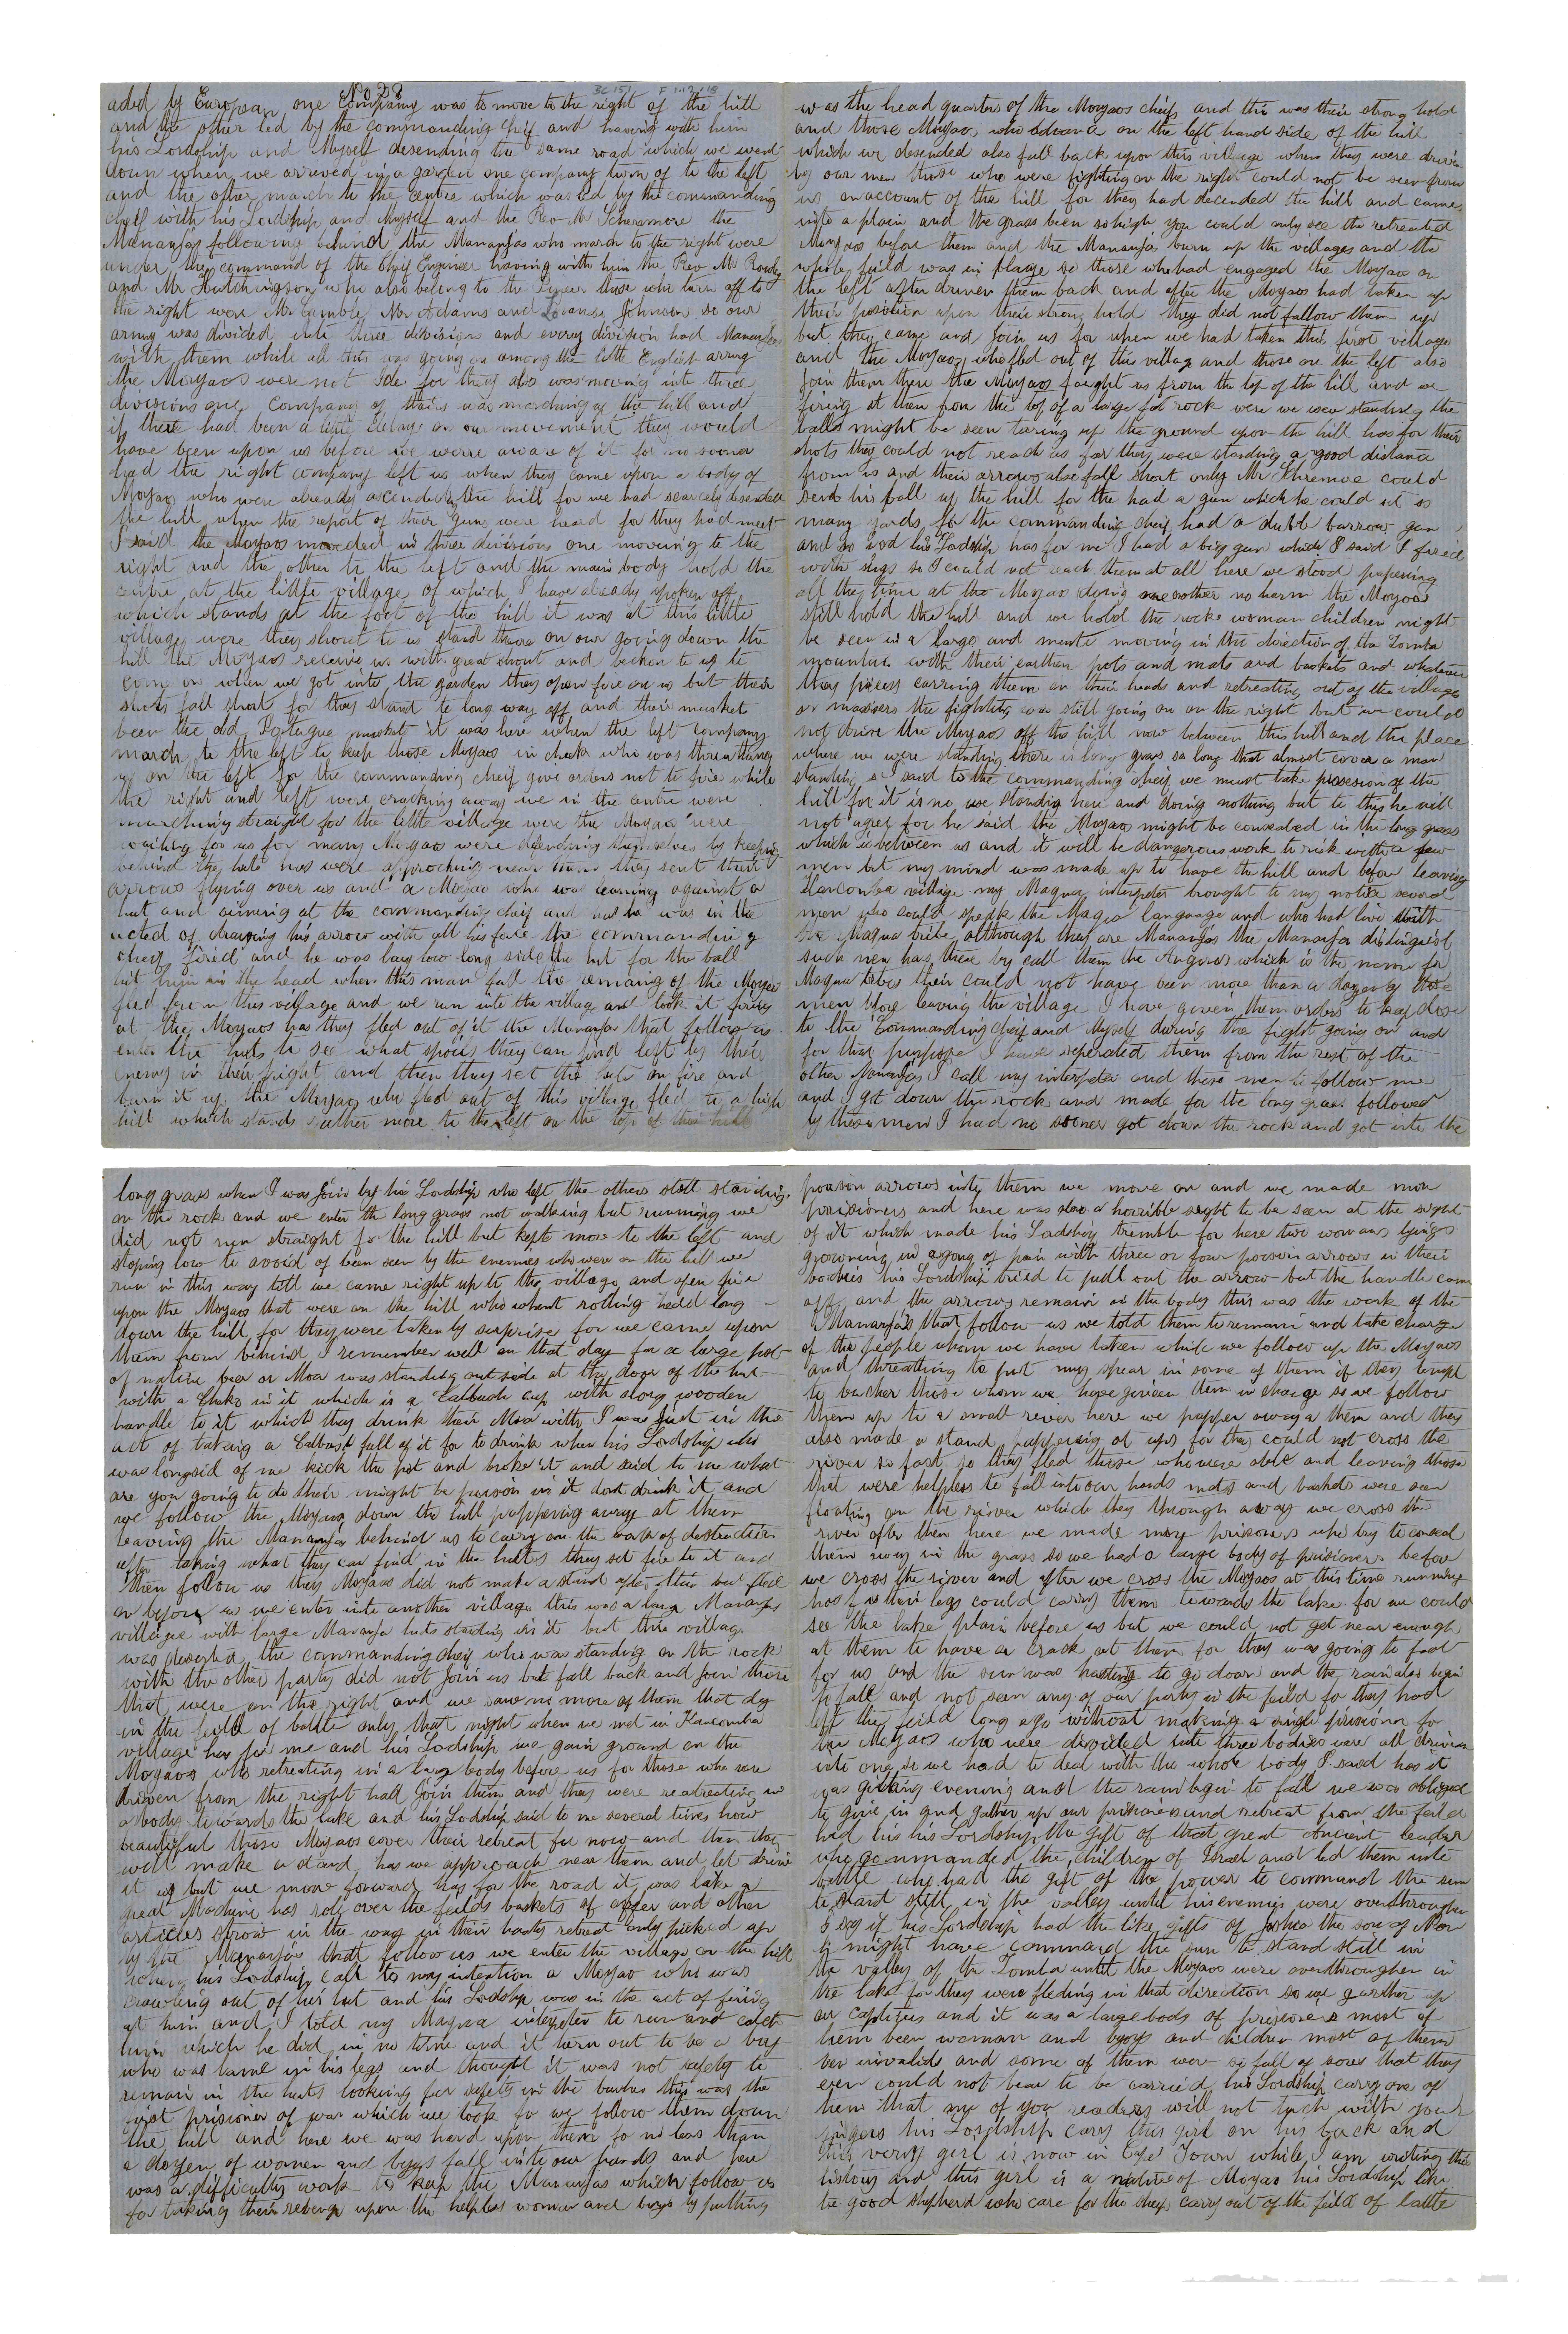 No 28
aded by European one Company was to move to the right of the hill
and the other led by the commanding cheif and having with him
his Lordship and Myself desending the same road which we went
down when we arrived in a garden one company turn of to the left
and the other march to the centre which was led by the commanding
cheif with his Lordship and Myself and the Rev Mr the
Mananjas following behind the Mananjas who march to the right were
under the command of the Cheif Engineer having with him the Rev Mr Rowley
and Mr Hutchingson who also belong to the those who turn off to
the right wer Mr Gamble Mr Adams and Johnson so our
army was divided into three divisions and every division had Mananjas
with them while all this was going on among the little English army
the Moyaos were not Idle for they also was moving into three
divisions one Company of theirs was marching up the hill and
if there had been a little delays on our movement they would
have been upon us before we were aware of it for no sooner
had the right company left us when they came upon a body of
Moyaos who were already acending the hill for we had scarcely desended
the hill when the report of their guns were heard for they had meet
I said the Moyaos moveded in three divisions one moveing to the
right and the other to the left and the main body hold the
centre at the little village of which I have already spoken off
which stands at the foot of the hill it was at this little
village were they shout to us stand there on our going down the
hill the Moyaos receive us with great shout and becken to us to
come on when we got into the garden they open fire on us but their
shots fall short for they stand to long way off and their musket
been the old Portugue musket it was here when the left company
march to the left to keep those Moyaos in check who was threathing
us on the left for the commanding cheif give orders not to fire while
the right and left were cracking away we in the centre were
marching straight for the little village were the Moyaos were
waiting for us for many Moyaos were defending themselves by keeping
behind the huts has were approching near them they sent their
arrows flying over us and a Moyao who was leaning against a
hut and aiming at the commanding cheif and has he was in the
acted of drawing his arrow with all his face the commanding
cheif fired and he was lay low long side the hut for the ball
hit him in the head when this man fall the remaing of the Moyaos
fled from this village and we run into the village and took it fireing
at the Moyaos has they fled out of it the Mananjas that follow us
enter the huts to see what spoils they can find left by their
enemy in their fright and then they set the huts on fire and
burn it up the Moyaos who fled out of this village fled to a high
hill which stands rather more to the left on the top of this hill
was the head quarters of the Moyaos cheifs and this was their strong hold
and those Moyaos who advance on the left hand side of the hill
which we desended also fall back upon this village when they were driven
by our men those who were fighting on the right could not be seen from
us on account of the hill for they had decended the hill and came
into a plain and the grass been so high you could only see the retreated
Moyaos before them and the Mananja burn up the villages and the
whole feild was in blaze so those who had engaged the Moyaos on
the left after driven them back and after the Moyaos had taken up
their position upon their strong hold they did not follow them up
but they came and Join us for when we had taken this first village
and the Moyaos who fled out of this village and those on the left also
Join them there the Moyaos faught us from the top of the hill and we
fireing at them from the top of a large rock were we were standing the
balls might be seen taring up the ground upon the hill has for their
shots they could not reach us for they were standing a good distance
from us and their arrows also fall short only Mr could
send his ball up the hill for the had a gun which he could it so
many yards for the commanding cheif had a duble barrow gun
and so had his Lordship has for me I had a big gun which I said I fired
with slugs so I could not reach them at all here we stood pepering
all the time at the Moyaos doing one another no harm the Moyaos
still hold the hill and we hold the rocks woman children might
be seen in a large and moving in the direction of the Zomba
mountain with their earthen pots and mats and baskets and whatever
they carring them on their heads and retreating out of the villages
or the fighting was still going on on the right but we could
not drive the Moyaos off the hill now between this hill and the place
where we were standing there is long grass so long that almost cover a man
standing so I said to the commanding cheif we must take possesion of the
hill for it is no use standing here and doing nothing but to this he will
not agree for he said the Moyaos might be concealed in the long grass
which is between us and it will be dangerous work to risk with a few
men but my mind was made up to have the hill and before leaving
village my Magua interpeter brought to my notice several
men who could speak the Magua language and who had live with
the Magua tribe although they are Mananjas the Mananja distinguist
such men has these by call them the which is the name for
Magua their could not have been more than a dozen of these
men before leaving the village I have given them orders to keep close
to the Commanding cheif and Myself during the fight going on and
for that purpose I have seperated them from the rest of the
other Mananjas I call my interpeter and these men to follow me
and I got down the rock and made for the long grass followed
by these men I had no sooner got down the rock and got into the
long grass when I was Join by his Lordship who left the others still standing
on the rock and we enter the long grass not walking but running we
did not run straight for the hill but kept more to the left and
stoping low to avoid of been seen by the enemies who were on the hill we
run in this way till we came right up to the village and open fire
upon the Moyaos that were on the hill who whent rolling head long
down the hill for they were taken by surprise for we came upon
them from behind I remember well on that day for a large pot
of native beer or Moa was standing out side at the door of the hut
with a in it which is a Calbash cup with along wooden
handle to it which they drink their Moa with I was Just in the
act of taking a Calbash full of it for to drink when his Lordship who
was longsid of me kick the pot and broke it and said to me what
are you going to do their might be poison in it dont drink it and
we follow the Moyaos down the hill peppering away at them
leaving the Mananja behind us to carry on the work of destruction
after taking what they can find in the hutts they set fire to it and
then follow us they Moyaos did not make a stand after this but fled
on before us we enter into another village this was a large Mananja
village with large Mananja huts standing in it but this village
was deserted the commanding cheif who was standing on the rock
with the other party did not Join us but fall back and Join those
that were on the right and we saw no more of them that day
in the feild of battle only that night when we met in
village has for me and his Lordship we gain ground on the
Moyaos who retreating in a large body before us for those who were
driven from the right had Join them and they were reatreating in
a body towards the lake and his Lordship said to me several times how
beautiful those Moyaos cover their retreat for now and then they
will make a stand has we approach near them and let drive
it us but we move forward has for the road it was like a
great Machine has role over the feilds baskets of and other
articles strow in the way in their hasty retreat only picked up
by the Mananjas that follow us we enter the village on the hill
when his Lordship call to my intention a Moyao who was
crawling out of his hut and his Lordship was in the act of firing
at him and I told my Magua interpeter to run and catch
him which he did in no time and it turn out to be a boy
who was lame in his legs and thought it was not safety to
remain in the huts looking for safety in the bushes this was the
first prisioner of war which we took so we follow them down
the hill and here we was hard upon them for no less than
a dozen of women and boys fall into our hands and here
was a difficulty work to keep the Mananjas which follow us
for taking their revenge upon the helpless woman and boys by putting
poison arrows into them we move on and we made more
prisioners and here was also a horrible sight to be seen at the sight
of it which made his Lordship tremble for here two womans lying
growning in agony of pain with three or four poison arrows in their
bodies his Lordship tried to pull out the arrow but the handle came
off and the arrows remain in the body this was the work of the
Mananjas that follow us we told them to remain and take charge
of the people whom we have taken while we follow up the Moyaos
and threathing to put my spear in some of them if they tempt
to bucher those whom we have given them in charge so we follow
them up to a small rever here we pepper away a them and they
also made a stand peppering at us for they could not cross the
river so fast so they fled those who were able and leaving those
that were helpless to fall into our hands mats and baskets were seen
floating on the river which they through away we cross the
river after them here we made many prisiners who try to conceal
them sevey in the grass so we had a large body of prisioners before
we cross the river and after we cross the Moyaos at this time running
has if their legs could carry them towards the lake for we could
see the lake plain before us but we could not get near enough
at them to have a crack at them for they was going to fast
for us and the sun was hasting to go down and the rain also begin
to fall and not seen any of our party in the feild for they had
left the feild long ago without making a single prisioner for
the Moyaos who were devided into three bodies were all driven
into one so we had to deal with the whole body I said has it
was getting evening and the rain begin to fall we was obliged
to give in and gather up our prisioners and retreat from the feild
had his his Lordship the gift of that great Ancient leader
who commanded the children of Israel and led them into
battle who had the gift of the power to command the sun
to stand still in the valley until his enemies were overthroughen
I say if his Lordship had the like gifts of Joshua the son of Non
he might have command the sun to stand still in
the valley of the Zomba until the Moyaos were overthroughen in
the lake for they were fleding in that direction so we garther up
our captives and it was a large body of prisioners most of
them been woman and boys and children most of them
ver invalids and some of them wer so full of sores that they
even could not bear to be carried his Lordship carry one of
them that my of you readers will not tuch with your
fingers his Lordship cary this girl on his back and
this very girl is now in Cape Town while I am writing this
history and this girl is a native of Moyao his Lordship like
the good shepherd who care for the sheep carry out of the feild of battle